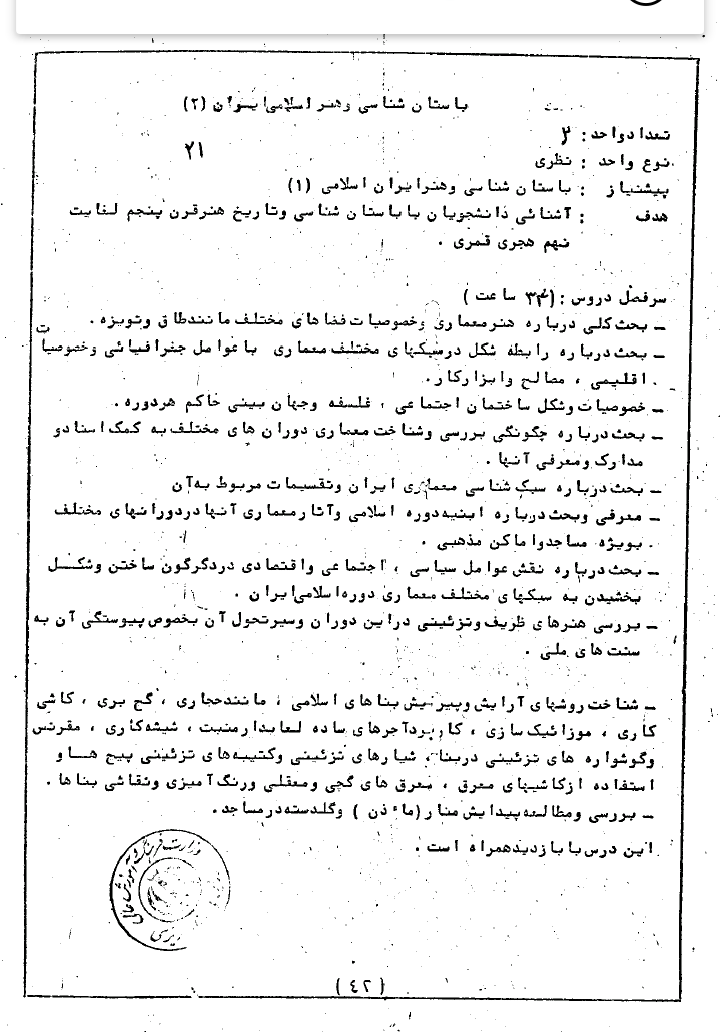 باستان شناسی وهنر اسلامی ایران (۲)
تعداد واحد : ۲
۲۱
نوع واحد : نظری
پیشنیاز : باستان شناسی وهنر ایران اسلامی (۱)
هدف : آشنائی دانشجویان با باستان شناسی وتاریخ هنر قرن پنجم لغایت
نهم هجری قمری .
سرفصل دروس : (۳۴ ساعت )
ـ بحث کلی درباره هنر معماری وخصوصیات فضاهای مختلف مانند طاق وتویزه .
ـ بحث درباره رابطه شکل در سبکهای مختلف معماری با عوامل جغرافیائی وخصوصیات
اقلیمی ، مصالح وابزار کار .
ـ خصوصیات وشکل ساختمان اجتماعی ، فلسفه وجهان بینی حاکم هر دوره .
ـ بحث درباره چگونگی بررسی وشناخت معماری دوران های مختلف به کمک اسناد و
مدارک ومعرفی آنها .
ـ بحث درباره سبک شناسی معماری ایران وتقسیمات مربوط به آن
ـ معرفی وبحث درباره ابنیه دوره اسلامی وآثار معماری آنها در دورانهای مختلف
بویژه مساجد واماکن مذهبی .
ـ بحث درباره نقش عوامل سیاسی ، اجتماعی واقتصادی در دگرگون ساختن وشکل
بخشیدن به سبکهای مختلف معماری دوره اسلامی ایران .
ـ بررسی هنرهای ظریف وتزئینی در این دوران وسیر تحول آن بخصوص پیوستگی آن به
سنت های ملی .
ـ شناخت روشهای آرایش وپیرایش بناهای اسلامی ، مانند حجاری ، گچ بری ، کاشی
کاری ، موزائیک سازی ، کاربرد آجرهای ساده لعابدار منبت ، شیشه کاری ، مقرنس
وگوشواره های تزئینی در بنا ، شیارهای تزئینی وکتیبه های تزئینی پیچ هــا و
استفاده از کاشیهای معرق ، معرق های گچی ومعقلی ورنگ آمیزی ونقاشی بناها .
ـ بررسی ومطالعه پیدایش منار (مأذن ) وگلدسته در مساجد .
این درس با بازدید همراه است .
وزارت فرهنگ و آموزش عالی
(۴۲)